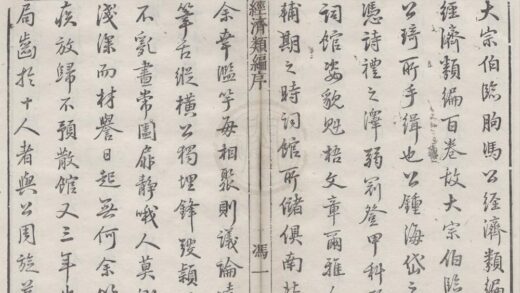 大宗伯臨朐馮公經濟類編
經濟類編百卷故大宗伯臨
公琦所手緝也公鍾海岱之
憑詩禮之澤弱冠登甲科
詞館姿貌魁梧文章爾雅人
輔期之時詞館所儲俱南北
經濟類編序 馮一
余幸濫竽每相聚則議論
筆舌縱橫公獨埋鋒穎
不亂晝常闔扉靜哦人莫
淺深而材譽日起無何余
疾放歸不預散館又三年
局齒於十人者與公周旋